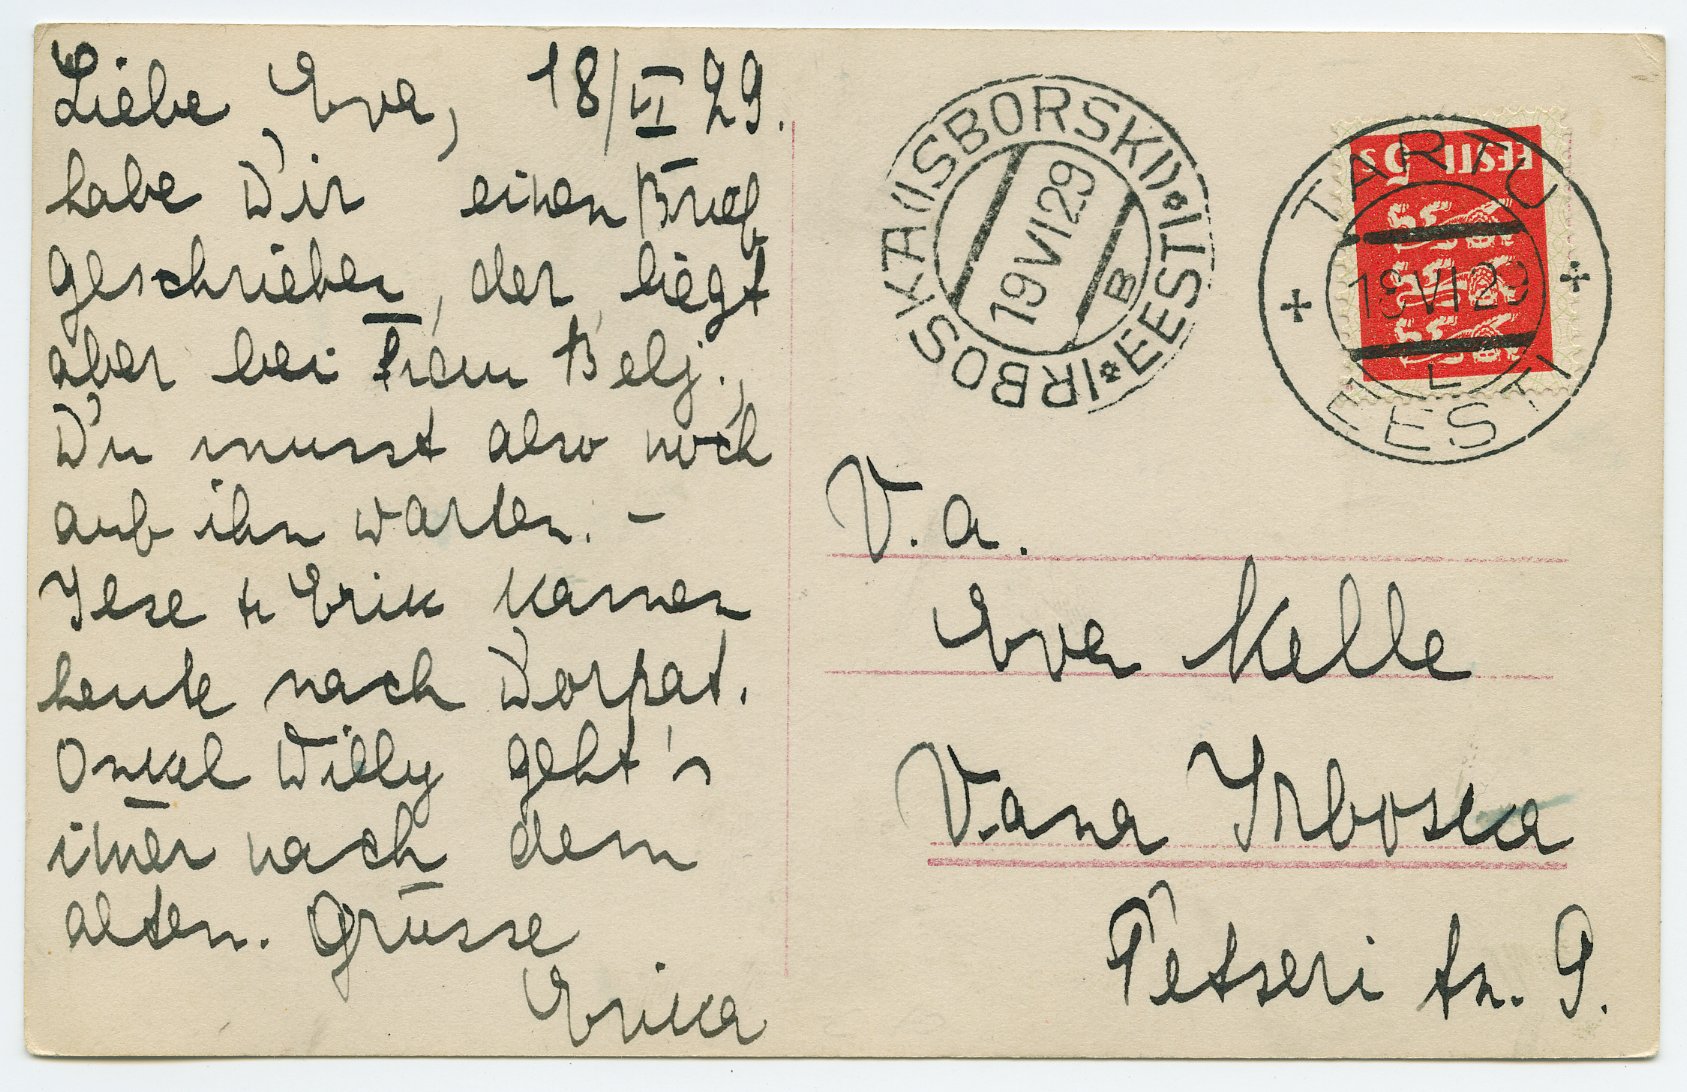 Liebe Eva, 18/VI 29.
habe Dir einen Brief
geschrieben, der liegt
aber bei Belj.,
Du musst also noch
auf ihn warten. –
Ilse u Erik kamen
heute nach Dorpat.
Onkel Willy geht's
im̅er nach dem
alten. Grüsse
Erika
IRBOSKA (ISBORSK) * EESTI *
19 VI 29
B
EESTI 5 S
TARTU
19 VI 29
L
EESTI
V. a.
Eva Kelle
Vana Irboska
Petseri tn. 9.